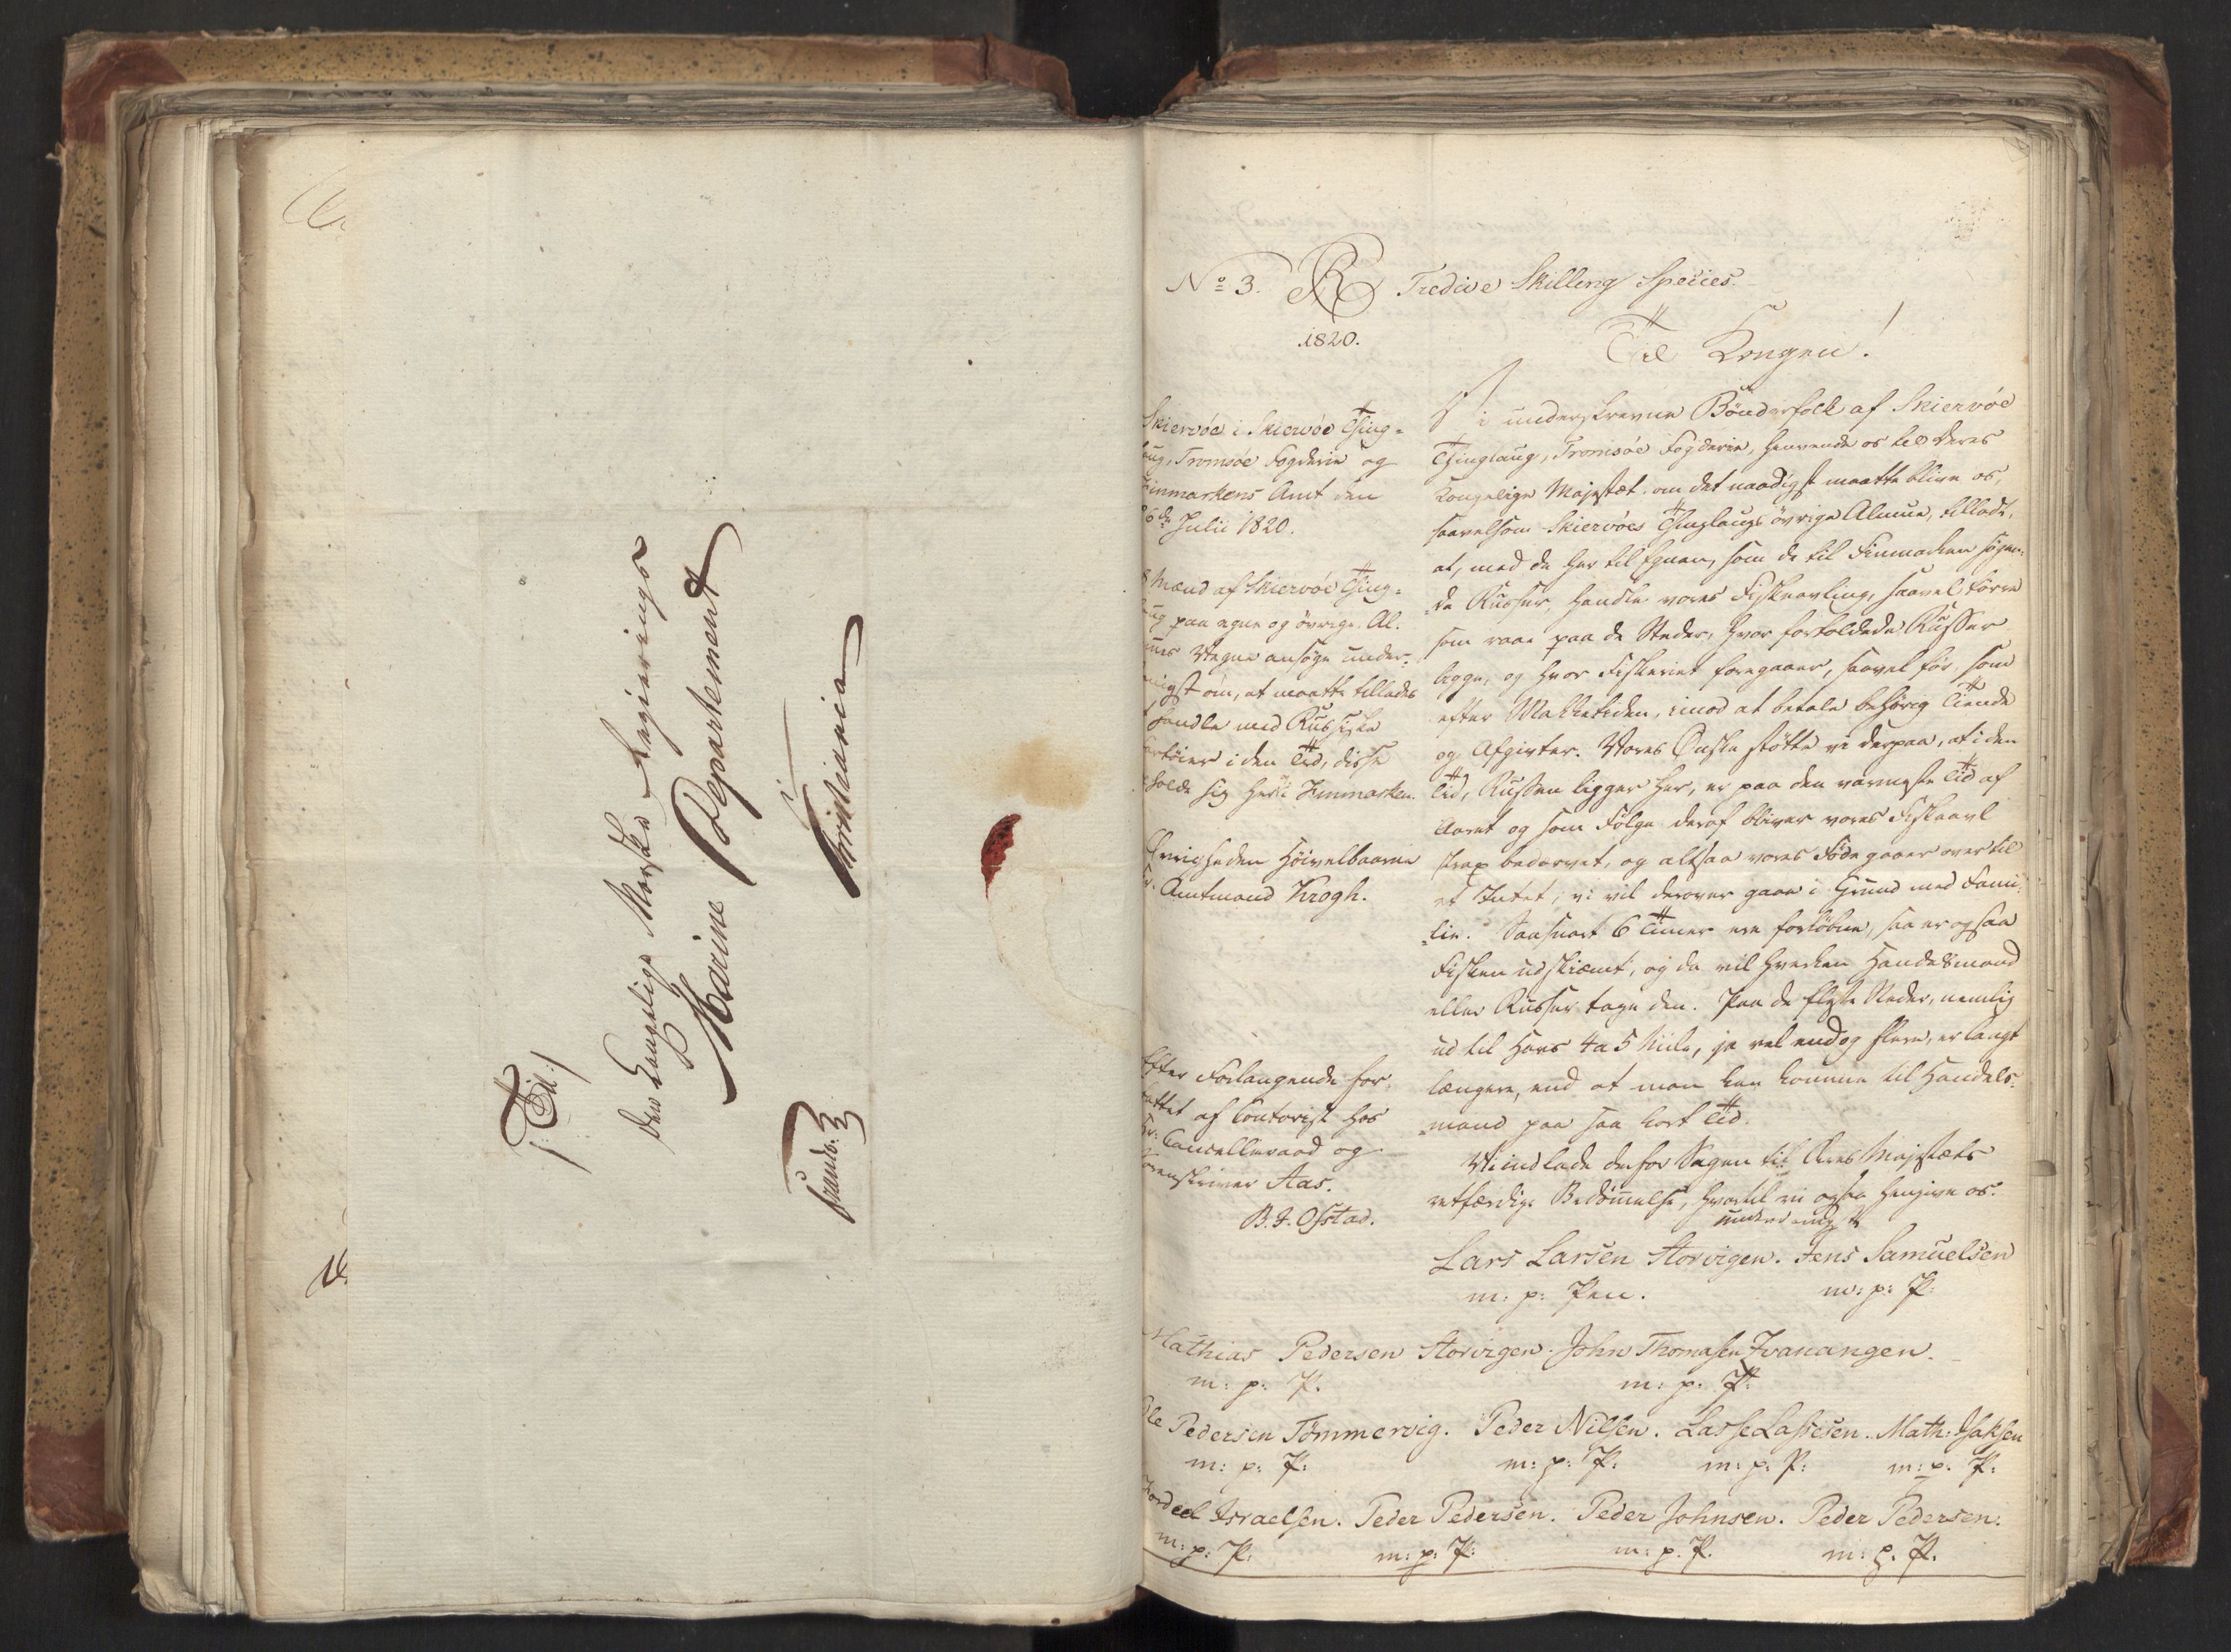 /:Til:/
Den Kongelige Norske Regierings
Marine Departement
i
Christiania
Franco.
No 3. Tredive Skilling Species.
1820.
Til Kongen!
Skiervöe i Skiervöe Thing=
laug, Tromsöe Fogderie og
Finmarkens Amt den
26de Julii 1820.
Mænd af Skiervöe Thing=
laug paa egne og övrige Al=
mues Vegne ansöge under=
danigst om, at maatte tillades
at handle med Russiske
Fartöier i den Tid, disse
opholde sig her i Finmarken.
Övrigheden Höivelbaarne
Hr. Amtmand Krogh.
Efter Forlangende for=
fattet af Contorist hos
Hr: Cancelleraad og
Sorenskriver Aas.
B. J. Ofstad.
Vi underskrevne Bönderfolk af Skiervöe
Thinglaug, Tromsöe Fogderie, henvende os til Deres
Kongelige Majestæt, om det naadigst maatte blive os,
saavelsom Skiervöes Thinglaugs övrige Almue, tilladt,
at, med de her til Egnen, som de til Finmarken sögen=
de Russer, handle vores Fiskeavling, saavel törre
som raae paa de Steder, hvor forholdede Russer
ligge, og hvor Fiskeriet foregaaer, saavel för, som
efter Makketiden, imod at betale behörig Tiende
og Afgivter. Vores Önske stötte vi derpaa, at i den
Tid, Russen ligger her, er paa den varmeste Tid af
Aaret og som Fölge deraf bliver vores Fiskeavl
strax bedervet, og altsaa vores Föde gaaer over til
et Intet, vi vil derover gaae i Grund med Fami=
lie. Saasnart 6 Timer ere forlöbne, saa er ogsaa
Fisken udskiæmt, og da vil hverken Handelsmand
eller Russer tage den. Paa de fleste Steder, nemlig
ud til Havs 4 a 5 Mile, ja vel endog flere, er langt
længere, end at man kan komme til Handels=
mand paa saa kort Tid.
Vi indlade derfor Sagen til Deres Majestæts
retfærdige Bedömmelse, hvortil vi ogsaa hengive os.
underdanigst
Lars Larsen Storvigen. Jens Samuelsen
m: p: Pen. m: p: P:
Mathias Pedersen Storvigen. John Thomasen Kvanangen.
m: p: P. m: p: P:
Ole Pedersen Tömmervig. Peder Nilsen. Lasse Lassesen. Math: Isaksen
m: p: P: m: p: P: m: p: P: m: p: P:
Israelsen. Peder Pedersen. Peder Johnsen. Peder Pedersen.
m: p: P: m: p: P: m: p. P. m: p. P.